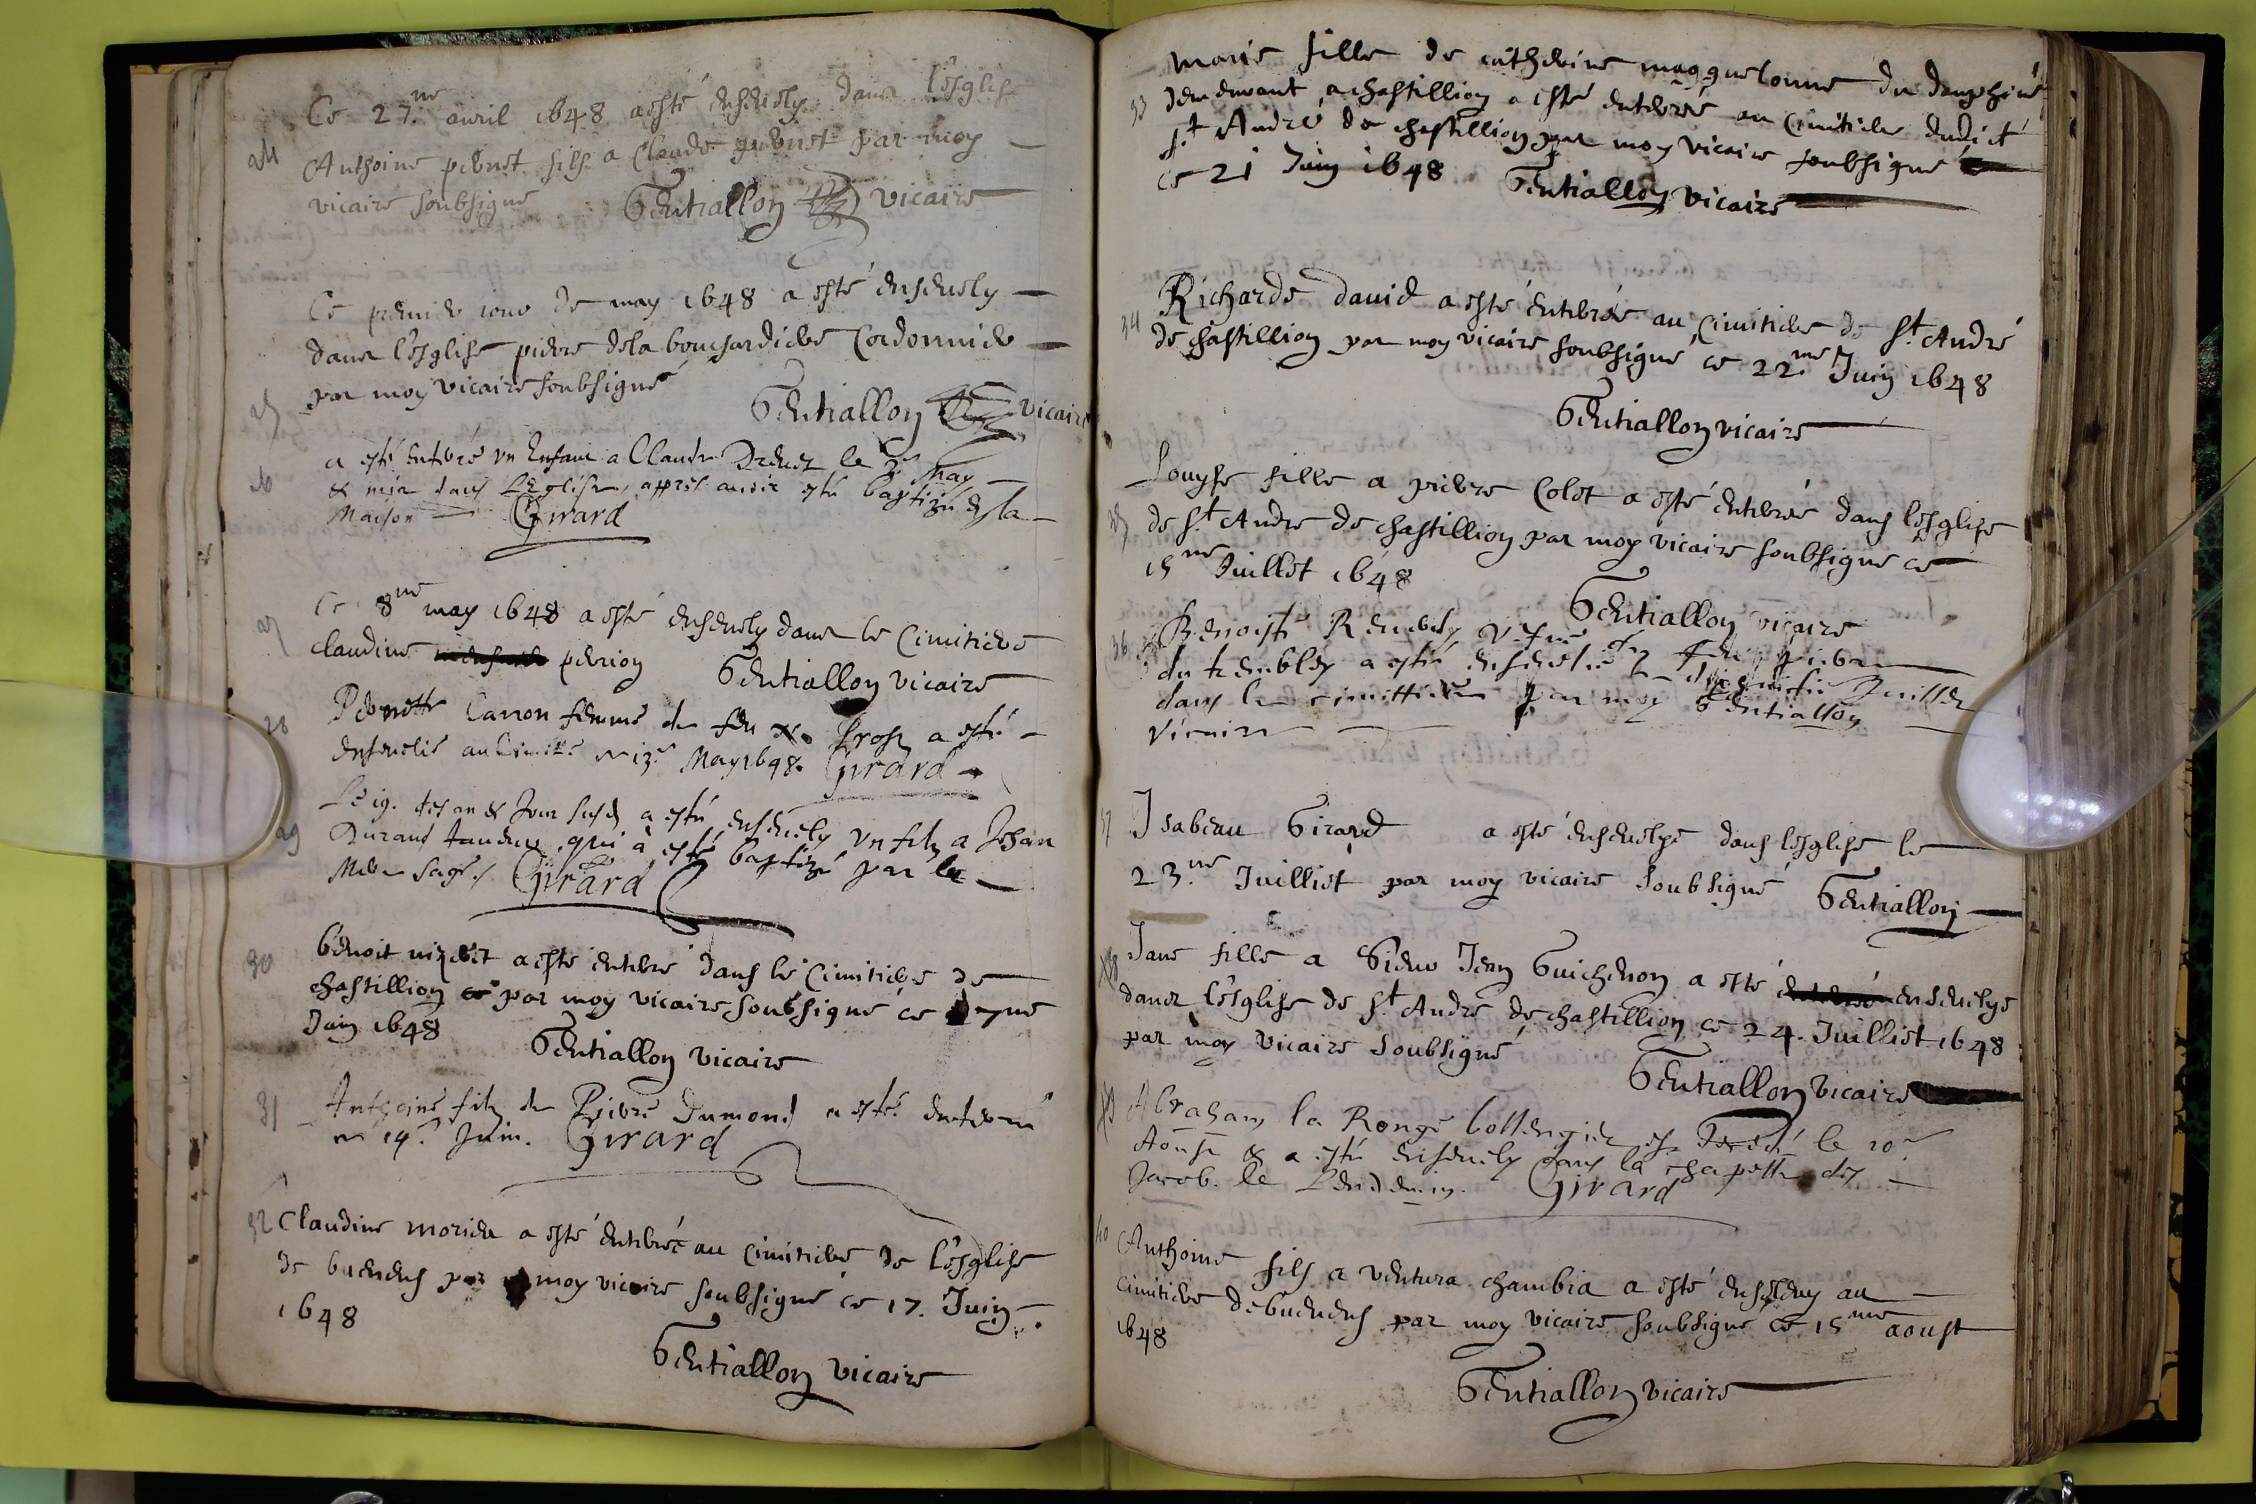 Ce 27.me auril 1648 a esté enseuely dans l'esglise
24 Anthoine peruet fils a Claude peruet par moy
vicaire soubsigne Gentiallon vicaire
Ce premier iour de may 1648 a esté enseuely
dans l'esglise pierre dela bouchardiere Cordonnier
25 par moy vicaire soubsigné
Gentiallon vicaire
26 a esté enterré vn Enfant a Claude le 3.e May
& mis dans L'Eglise, appres auoir esté baptizé a la
Maison Girard
27 Ce 8me may 1648 a esté enseuely dans le Cimitiere
claudine perrion Gentiallon vicaire
28 Pernette Carron femme de feu Gros a esté
enseuelie au Cimite. ce 13.e May 1648. Girard
29 Le 19. des an & Jour susd. a esté enseuely vn filz a Jehan
Durand qui a esté baptizé par la
Mere sage. Girard
30 benoit a esté enterré dans le Cimitiere de
chastillion par moy vicaire soubsigné ce 7me
Juin 1648
Gentiallon vicaire
31 Anthoine filz de Pierre Dumond a esté enterré
ce 14.e Juin. Girard
32 Claudine morier a esté enterrée au cimitiere de l'esglise
de buenens par moy vicaire soubsigné ce 17. Juin
1648
Gentiallon vicaire
Marie fille de catherine magguelonne du dauphiné
33 demeurant a chastillion a esté enterrée au Cimitiere dudict
st André de chastillion par moy vicaire soubsigné
ce 21 Juin 1648 Gentiallon vicaire
Richarde dauid a esté enterrée au cimitiere de st André
34 de chastillion par moy vicaire soubsigné ce 22.me Juin 1648
Gentiallon vicaire
Louyse fille a pierre Colet a esté enterrée dans l'esglise
35 de st Andre de chastillion par moy vicaire soubsigné ce
15me Juillet 1648
Gentiallon vicaire
36 Benoiste vefue de feu pierre
du tremblay a esté enseuelie Juillet
dans le cimittiere par moy Gentiallon
Vicaire
37 Isabeau Girard a esté enseuelye dans l'esglise le
23.me Juilliet par moy vicaire soubsigné Gentiallon
38 Jane fille a Sieur Jean Guichenon a esté enseuelye
dans l'esglise de st André de chastillion ce 24. Juilliet 1648
par moy vicaire soubsigné
Gentiallon vicaire
39 Abraham la Ronge bollengier est decedé le 10.e
Aoust & a esté enseuely dans la chapelle des
Jacob. le Lendemin. Girard
40 Anthoine fils a ventura chambia a esté au
cimitiere de buenens par moy vicaire soubsigne ce 15me aoust
1648
Gentiallon vicaire